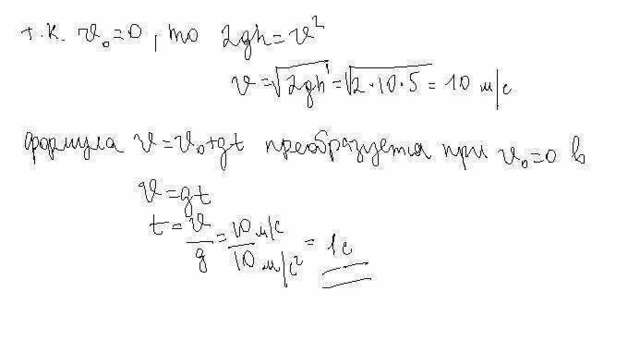 т.к. v₀=0, то 2gh=v²
v=√2gh=√2·10·5=10 м/с
формула v=v₀+gt преобразуется при v₀=0 в
v=gt
t=v/g=10 м/с/10 м/с²=1с